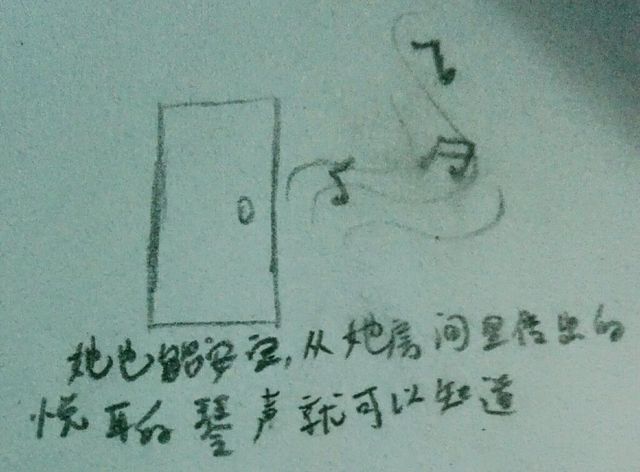 她也能安宝,从她房间里传出的
悦耳的琴声就可以知道